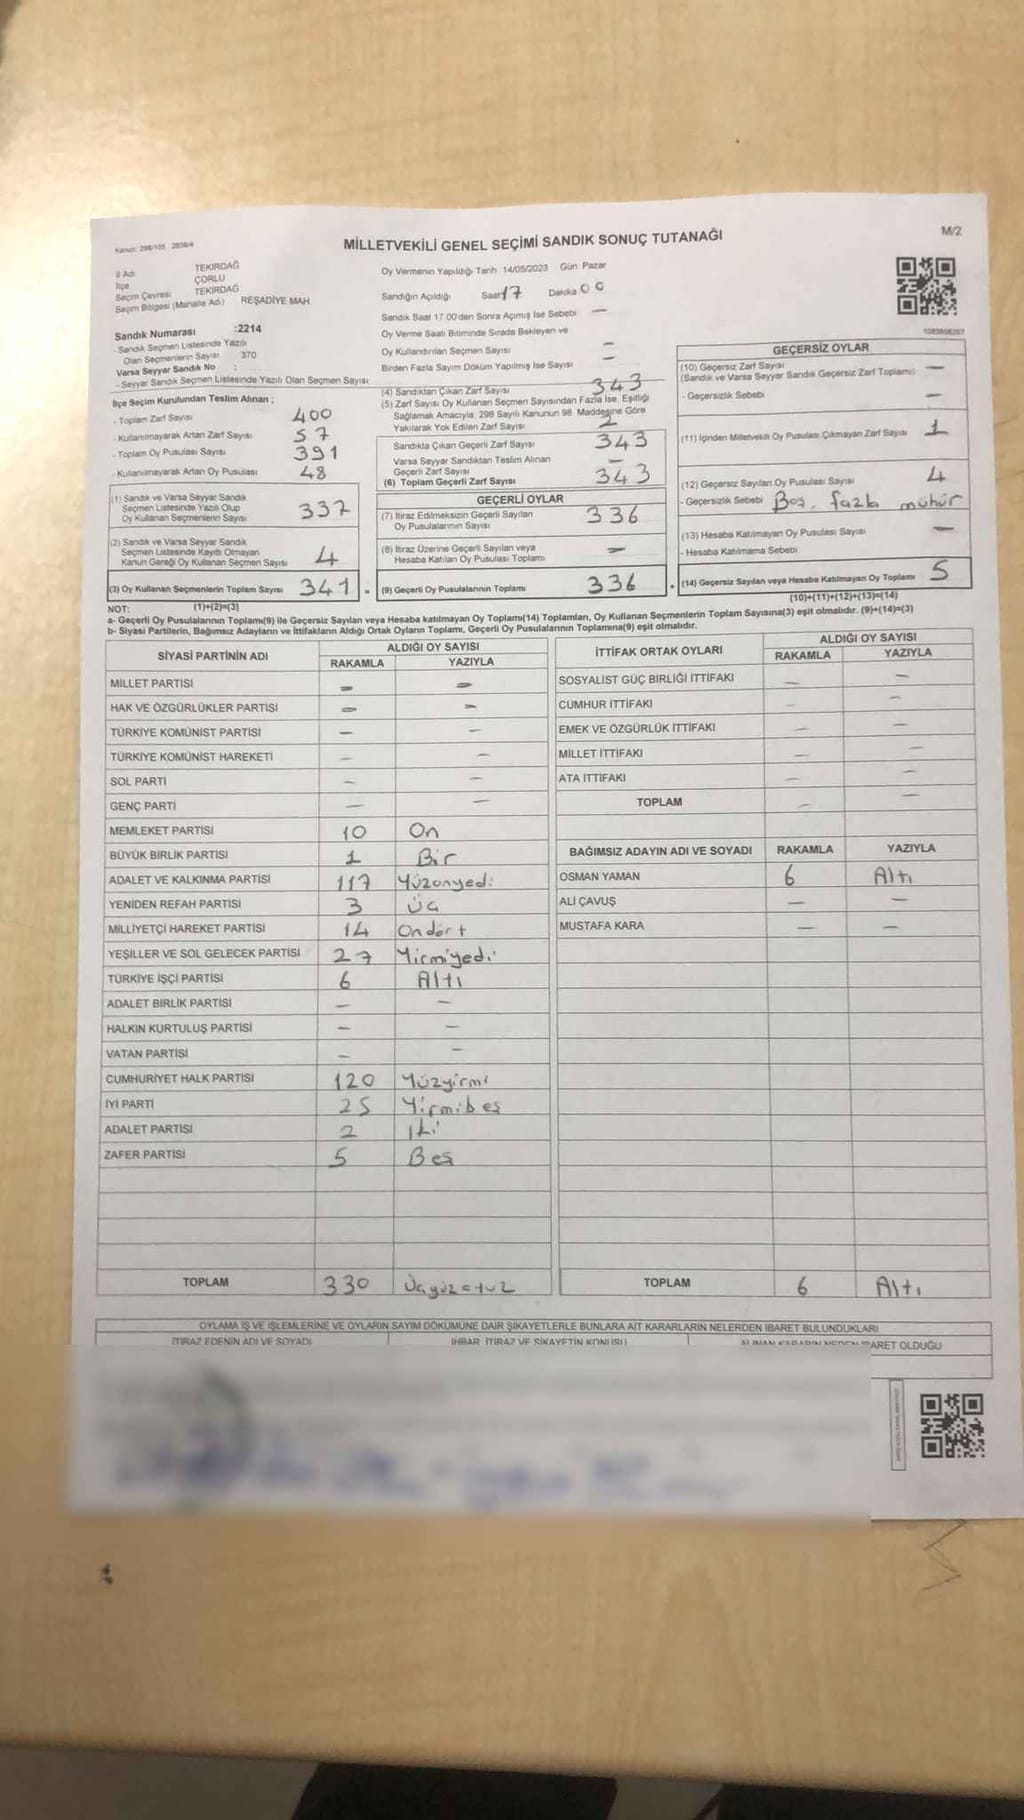 Kanun: 298/105, 2839/4
MİLLETVEKİLİ GENEL SEÇİMİ SANDIK SONUÇ TUTANAĞI
M/2
İl Adı TEKİRDAĞ
İlçe ÇORLU
Seçim Çevresi TEKİRDAĞ
Seçim Bölgesi (Mahalle Adı) REŞADİYE MAH.
Sandık Numarası :2214
- Sandık Seçmen Listesinde Yazılı
Olan Seçmenlerin Sayısı 370
Varsa Seyyar Sandık No :
- Seyyar Sandık Seçmen Listesinde Yazılı Olan Seçmen Sayısı
İlçe Seçim Kurulundan Teslim Alınan ;
- Toplam Zarf Sayısı 400
- Kullanılmayarak Artan Zarf Sayısı 57
- Toplam Oy Pusulası Sayısı 391
- Kullanılmayarak Artan Oy Pusulası 48
(1) Sandık ve Varsa Seyyar Sandık
Seçmen Listesinde Yazılı Olup
Oy Kullanan Seçmenlerin Sayısı 337
(2) Sandık ve Varsa Seyyar Sandık
Seçmen Listesinde Kayıtlı Olmayan
Kanun Gereği Oy Kullanan Seçmen Sayısı 4
(3) Oy Kullanan Seçmenlerin Toplam Sayısı 341
Oy Vermenin Yapıldığı Tarih 14/05/2023 Gün Pazar
Sandığın Açıldığı Saat 17 Dakika 00
Sandık Saat 17.00'den Sonra Açımış İse Sebebi —
Oy Verme Saati Bitiminde Sırada Bekleyen ve
Oy Kullandırılan Seçmen Sayısı —
Birden Fazla Sayım Döküm Yapılmış İse Sayısı —
(4) Sandıktan Çıkan Zarf Sayısı 343
(5) Zarf Sayısı Oy Kullanan Seçmen Sayısından Fazla İse, Eşitliği
Sağlamak Amacıyla; 298 Sayılı Kanunun 98. Maddesine Göre
Yakılarak Yok Edilen Zarf Sayısı 2
Sandıkta Çıkan Geçerli Zarf Sayısı 343
Varsa Seyyar Sandıktan Teslim Alınan
Geçerli Zarf Sayısı —
(6) Toplam Geçerli Zarf Sayısı 343
GEÇERLİ OYLAR
(7) İtiraz Edilmeksizin Geçerli Sayılan
Oy Pusulalarının Sayısı 336
(8) İtiraz Üzerine Geçerli Sayılan veya
Hesaba Katılan Oy Pusulası Toplamı —
(9) Geçerli Oy Pusulalarının Toplamı 336
1083606397
GEÇERSİZ OYLAR
(10) Geçersiz Zarf Sayısı —
(Sandık ve Varsa Seyyar Sandık Geçersiz Zarf Toplamı)
- Geçersizlik Sebebi —
(11) İçinden Milletvekili Oy Pusulası Çıkmayan Zarf Sayısı 1
(12) Geçersiz Sayılan Oy Pusulası Sayısı 4
- Geçersizlik Sebebi Boş, fazla mühür
(13) Hesaba Katılmayan Oy Pusulası Sayısı —
- Hesaba Katılmama Sebebi
(14) Geçersiz Sayılan veya Hesaba Katılmayan Oy Toplamı 5
NOT: (1)+(2)=(3) (10)+(11)+(12)+(13)=(14)
a- Geçerli Oy Pusulalarının Toplamı(9) ile Geçersiz Sayılan veya Hesaba katılmayan Oy Toplamı(14) Toplamları, Oy Kullanan Seçmenlerin Toplam Sayısına(3) eşit olmalıdır. (9)+(14)=(3)
b- Siyasi Partilerin, Bağımsız Adayların ve İttifakların Aldığı Ortak Oyların Toplamı, Geçerli Oy Pusulalarının Toplamına(9) eşit olmalıdır.
SİYASİ PARTİNİN ADI ALDIĞI OY SAYISI
RAKAMLA YAZIYLA
MİLLET PARTİSİ — —
HAK VE ÖZGÜRLÜKLER PARTİSİ — —
TÜRKİYE KOMÜNİST PARTİSİ — —
TÜRKİYE KOMÜNİST HAREKETİ — —
SOL PARTİ — —
GENÇ PARTİ — —
MEMLEKET PARTİSİ 10 On
BÜYÜK BİRLİK PARTİSİ 1 Bir
ADALET VE KALKINMA PARTİSİ 117 Yüzonyedi
YENİDEN REFAH PARTİSİ 3 Üç
MİLLİYETÇİ HAREKET PARTİSİ 14 Ondört
YEŞİLLER VE SOL GELECEK PARTİSİ 27 Yirmiyedi
TÜRKİYE İŞÇİ PARTİSİ 6 Altı
ADALET BİRLİK PARTİSİ — —
HALKIN KURTULUŞ PARTİSİ — —
VATAN PARTİSİ — —
CUMHURİYET HALK PARTİSİ 120 Yüzyirmi
İYİ PARTİ 25 Yirmibeş
ADALET PARTİSİ 2 İki
ZAFER PARTİSİ 5 Beş
TOPLAM 330 Üçyüzotuz
İTTİFAK ORTAK OYLARI ALDIĞI OY SAYISI
RAKAMLA YAZIYLA
SOSYALİST GÜÇ BİRLİĞİ İTTİFAKI — —
CUMHUR İTTİFAKI — —
EMEK VE ÖZGÜRLÜK İTTİFAKI — —
MİLLET İTTİFAKI — —
ATA İTTİFAKI — —
TOPLAM — —
BAĞIMSIZ ADAYIN ADI VE SOYADI RAKAMLA YAZIYLA
OSMAN YAMAN 6 Altı
ALİ ÇAVUŞ — —
MUSTAFA KARA — —
TOPLAM 6 Altı
OYLAMA İŞ VE İŞLEMLERİNE VE OYLARIN SAYIM DÖKÜMÜNE DAİR ŞİKAYETLERLE BUNLARA AİT KARARLARIN NELERDEN İBARET BULUNDUKLARI
İTİRAZ EDENİN ADI VE SOYADI İHBAR, İTİRAZ VE ŞİKAYETİN KONUSU ALINAN KARARIN NEDEN İBARET OLDUĞU